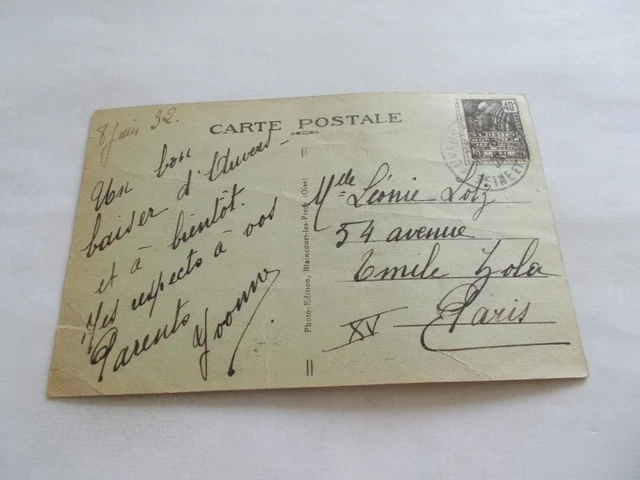 8 juin 32.
CARTE POSTALE
Un bon
baiser d'Auvers
et à bientôt.
Mes respects à vos
Parents
Yvonne
Photo-Edition, Blaincourt-les-Précy (Oise)
Mlle Léonie Loiz
54 avenue
Emile Zola
XV Paris
40c